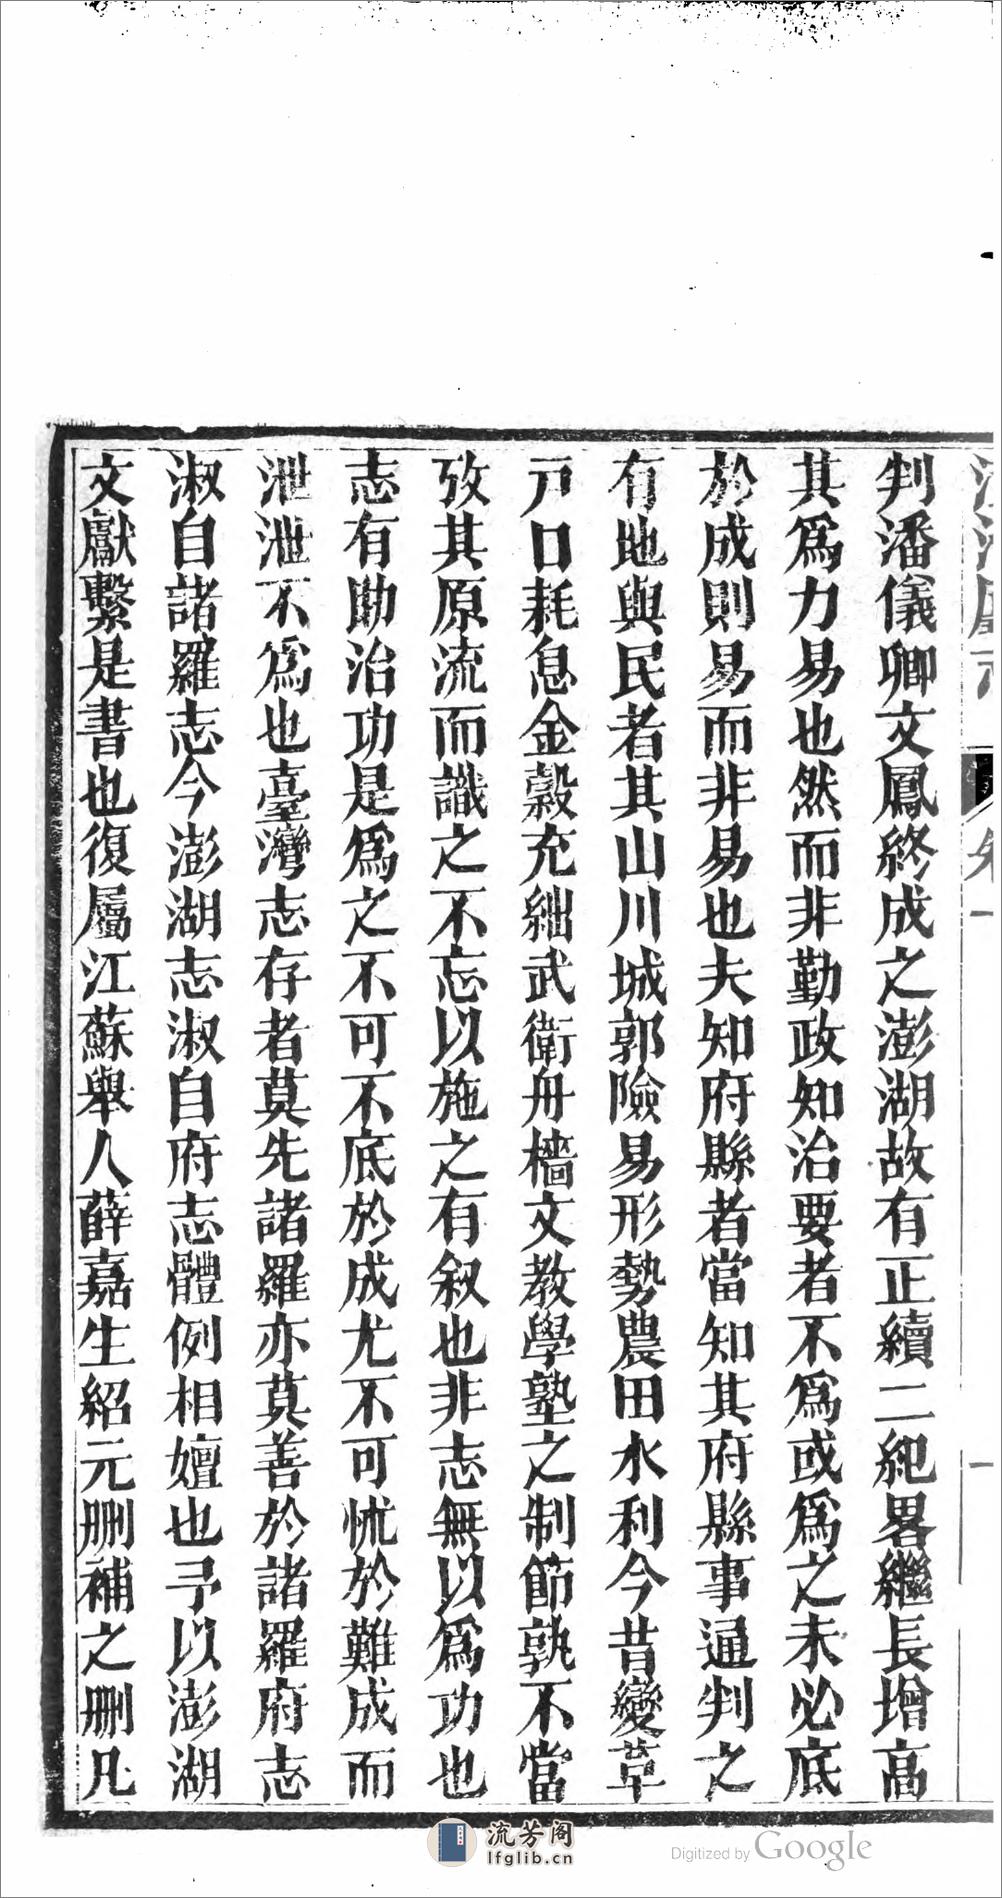 判潘儀卿文鳳終成之澎湖故有正續二紀畧繼長增高
其爲力易也然而非勤政知治要者不爲或爲之未必底
於成則易而非易也夫知府縣者當知其府縣事通判之
有地與民者其山川城郭險易形勢農田水利今昔變革
戸口耗息金穀充絀武衛舟檣文教學塾之制節孰不當
攷其原流而識之不忘以施之有叙也非志無以爲功也
志有助治功是爲之不可不底於成尤不可怵於難成而
泄泄不爲也臺灣志存者莫先諸羅亦莫善於諸羅府志
淑自諸羅志今澎湖志淑自府志體例相嬗也予以澎湖
文獻繫是書也復屬江蘇舉人薛嘉生紹元删補之删凡
流芳阁
lfglib.cn
Digitized by Google